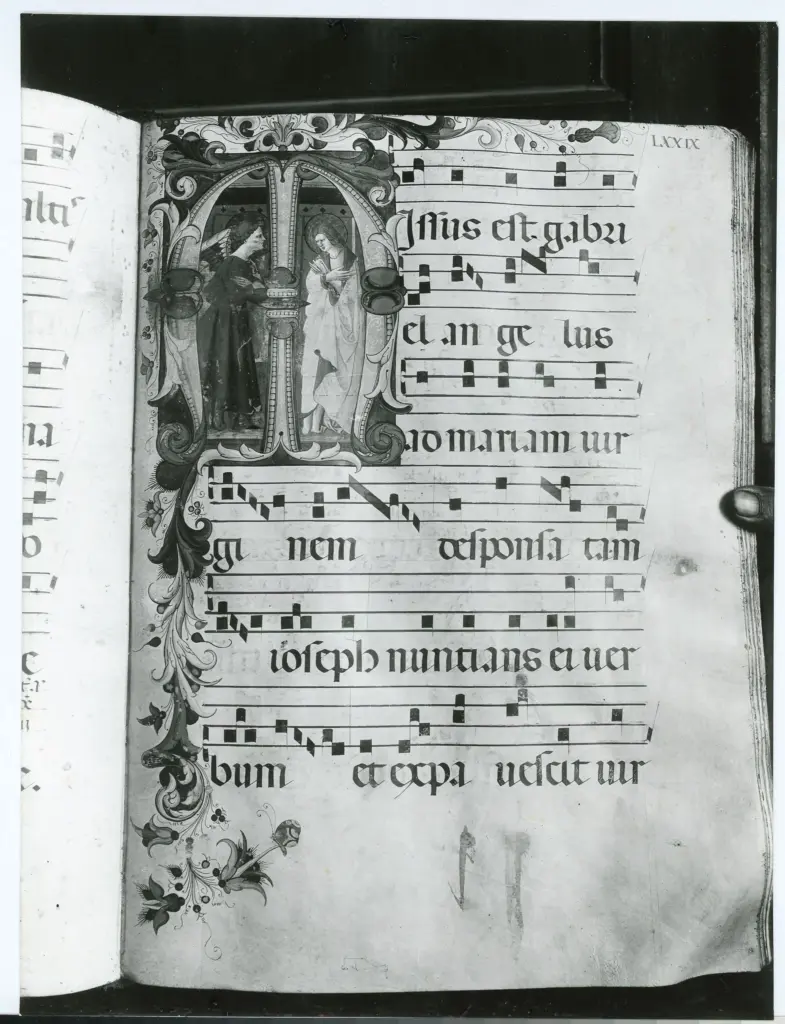 LXXIX
MIssus est gabri
el an ge lus
ad mariam uir
gi nem desponsa tam
ioseph nuntians ei uer
bum et expa uescit uir